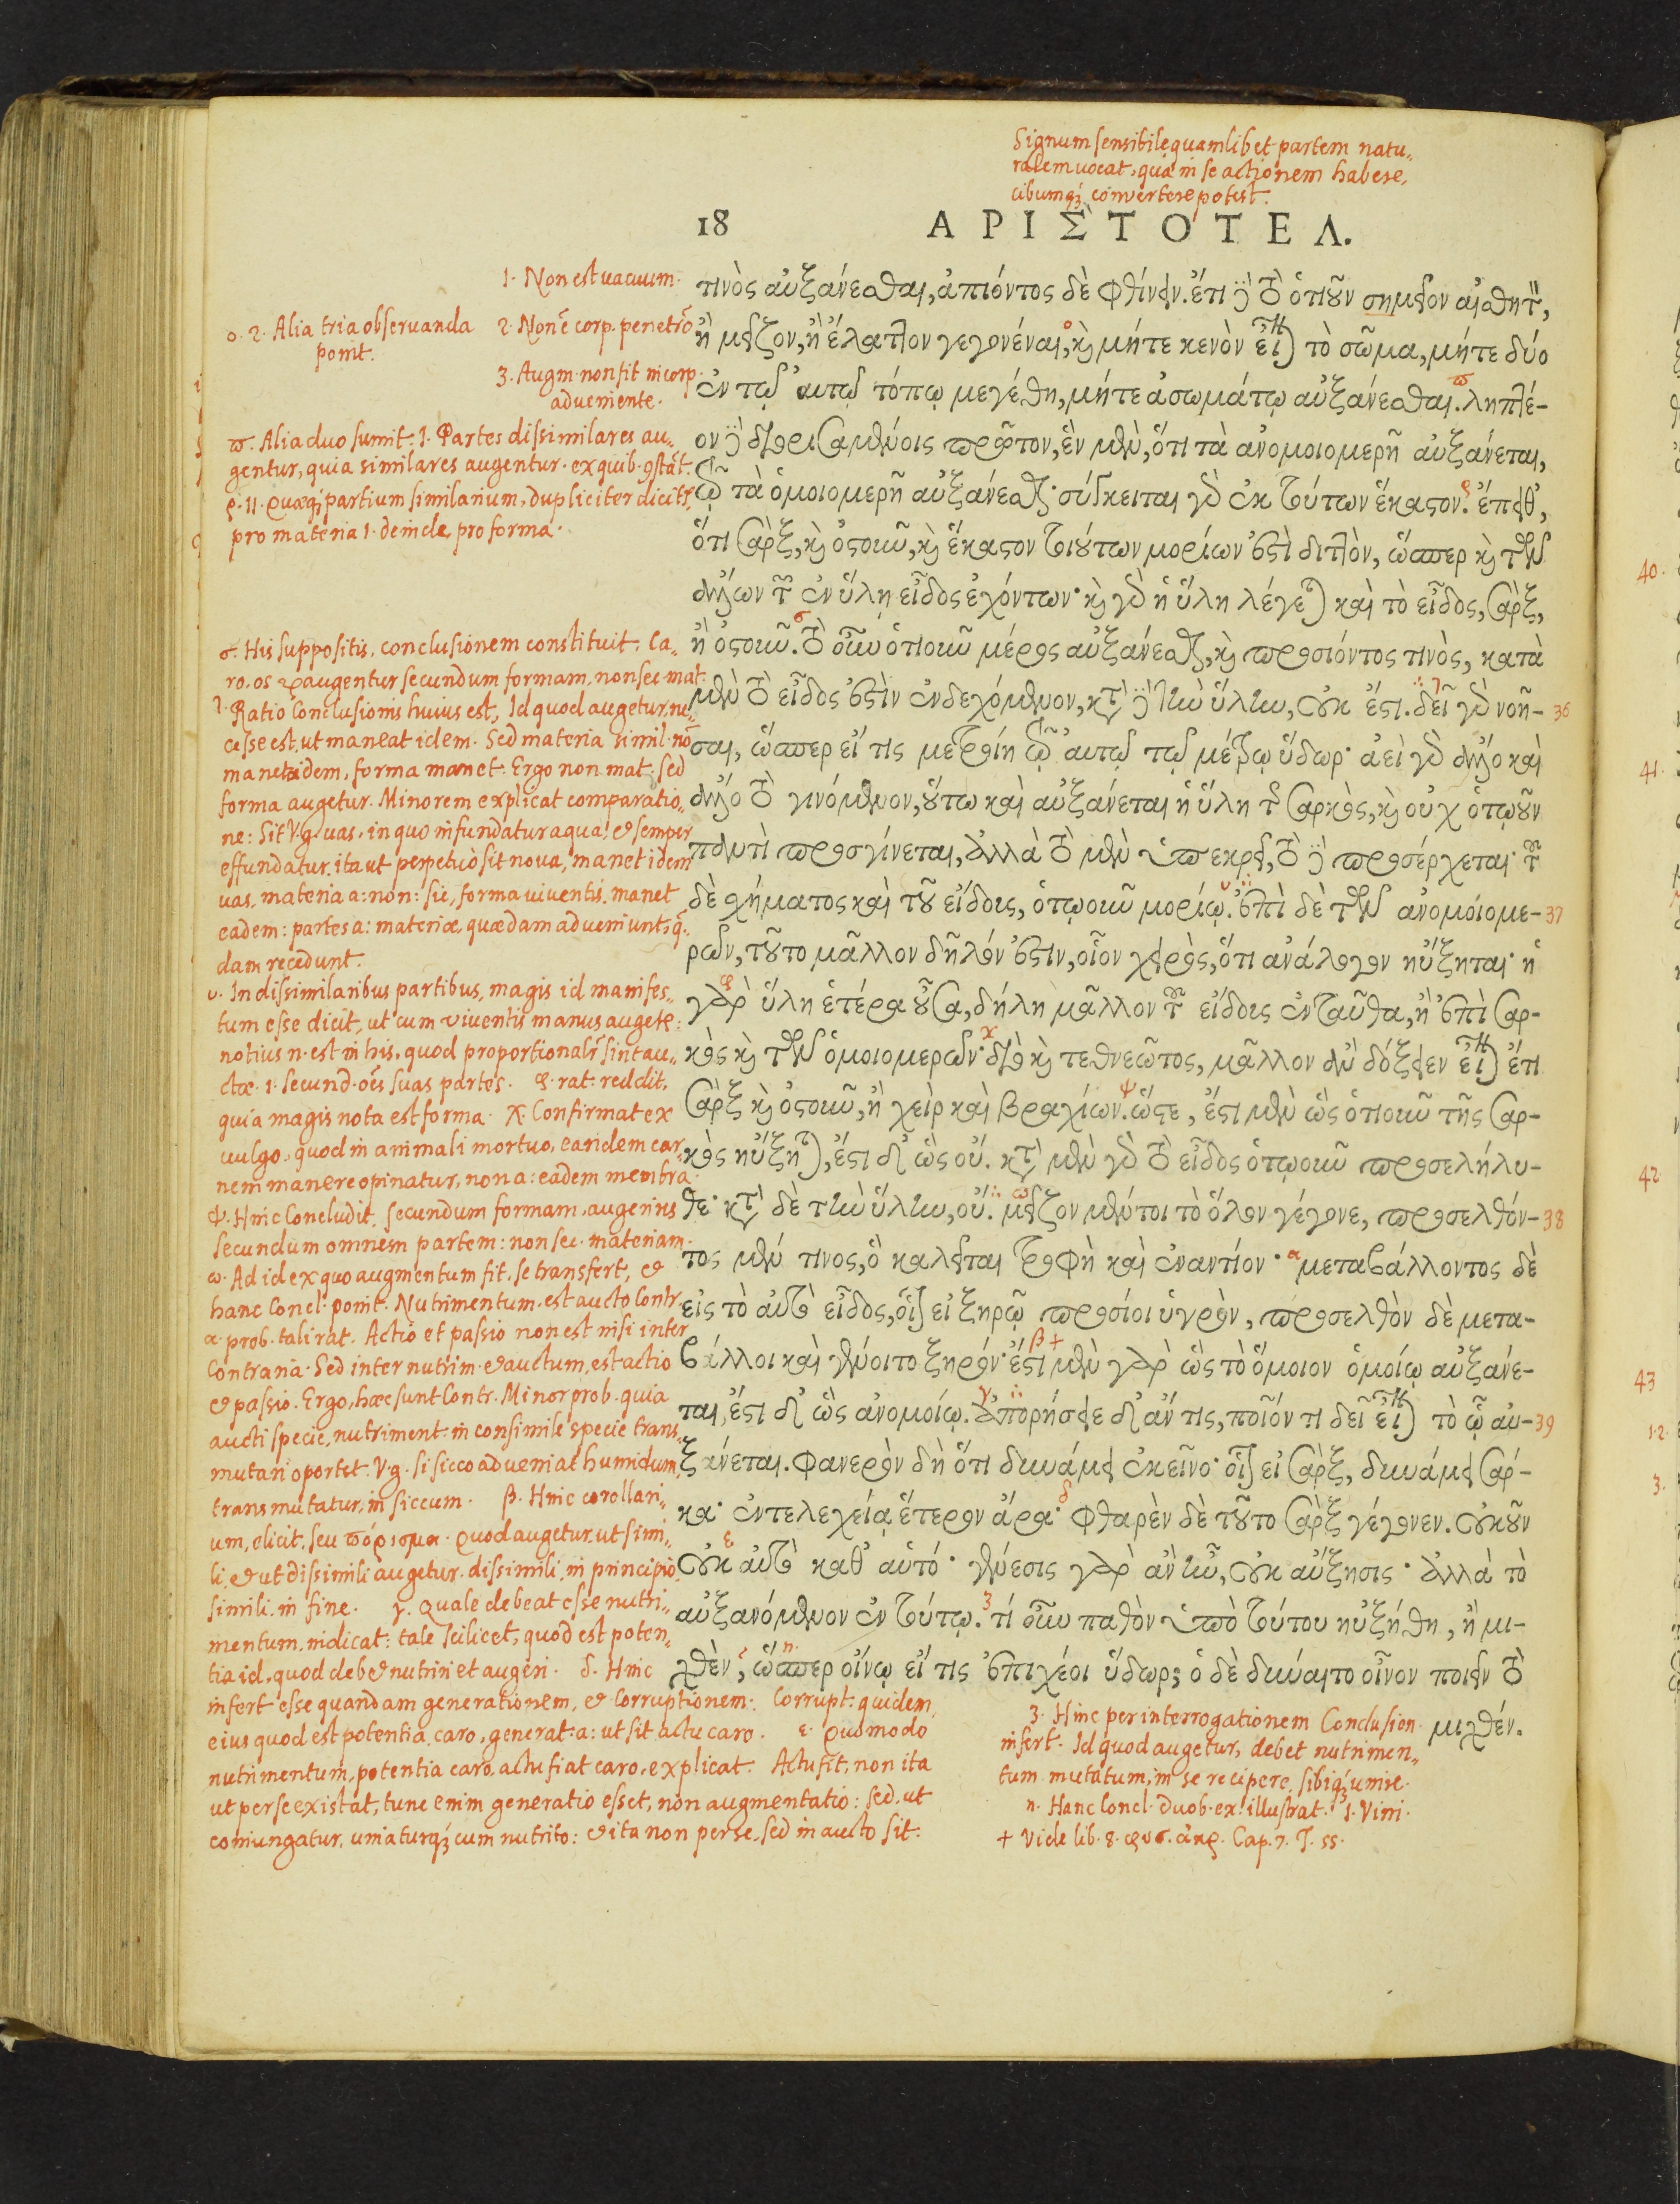 Signum sensibile quamlibet partem natu„
ralem uocat, quia in se actionem habere,
cibumq; convertere potest.
18 ΑΡΙΣΤΟΤΕΛ.
τινὸς αὐξάνεσθαι, ἀπιόντος δὲ φθίνειν. ἔτι δὲ τὸ ὁτιοῦν σημεῖον αἰσθητὸν,
ἢ μεῖζον, ἢ ἔλαττον γεγονέναι, καὶ μήτε κενὸν εἶναι τὸ σῶμα, μήτε δύο
ἐν τῷ αὐτῷ τόπῳ μεγέθη, μήτε ἀσωμάτῳ αὐξάνεσθαι. ληπτέ-
ον δὲ διορισαμένοις πρῶτον, ἓν μὲν, ὅτι τὰ ἀνομοιομερῆ αὐξάνεται,
τῷ τὰ ὁμοιομερῆ αὐξάνεσθαι· σύγκειται γὰρ ἐκ τούτων ἕκαστον. ἔπειθ᾽,
ὅτι σὰρξ, καὶ ὀστοῦν, καὶ ἕκαστον τοιούτων μορίων ἐστὶ διττὸν, ὥσπερ καὶ τῶν
ἄλλων τῶν ἐν ὕλῃ εἶδος ἐχόντων· καὶ γὰρ ἡ ὕλη λέγεται καὶ τὸ εἶδος, σὰρξ,
ἢ ὀστοῦν. τὸ οὖν ὁτιοῦν μέρος αὐξάνεσθαι, καὶ προσιόντος τινὸς, κατὰ
μὲν τὸ εἶδος ἐστὶν ἐνδεχόμενον, κατὰ δὲ τὴν ὕλην, οὐκ ἔστι. δεῖ γὰρ νοῆ- 36
σαι, ὥσπερ εἴ τις μετροίη τῷ αὐτῷ τῷ μέτρῳ ὕδωρ· ἀεὶ γὰρ ἄλλο καὶ
ἄλλο τὸ γινόμενον, οὕτω καὶ αὐξάνεται ἡ ὕλη τῆς σαρκὸς, καὶ οὐχ ὁτῳοῦν
παντὶ προσγίνεται, ἀλλὰ τὸ μὲν ὑπεκρεῖ, τὸ δὲ προσέρχεται· τοῦ
δὲ σχήματος καὶ τοῦ εἴδους, ὁτῳοῦν μορίῳ. ἐπὶ δὲ τῶν ἀνομοιομε- 37
ρῶν, τοῦτο μᾶλλον δῆλόν ἐστιν, οἷον χειρὸς, ὅτι ἀνάλογον ηὔξηται· ἡ
γὰρ ὕλη ἑτέρα οὖσα, δήλη μᾶλλον τοῦ εἴδους ἐνταῦθα, ἢ ἐπὶ σαρ-
κὸς καὶ τῶν ὁμοιομερῶν· διὸ καὶ τεθνεῶτος, μᾶλλον ἂν δόξειεν εἶναι ἔτι
σὰρξ καὶ ὀστοῦν, ἢ χεὶρ καὶ βραχίων. ὥστε, ἔστι μὲν ὡς ὁτιοῦν τῆς σαρ-
κὸς ηὔξηται, ἔστι δ᾽ ὡς οὔ. κατὰ μὲν γὰρ τὸ εἶδος ὁτῳοῦν προσελήλυ-
θε· κατὰ δὲ τὴν ὕλην, οὔ. μεῖζον μέντοι τὸ ὅλον γέγονε, προσελθόν- 38
τος μέν τινος, ὃ καλεῖται τροφὴ καὶ ἐναντίον· μεταβάλλοντος δὲ
εἰς τὸ αὐτὸ εἶδος, οἷον εἰ ξηρῷ προσίοι ὑγρὸν, προσελθὸν δὲ μετα-
βάλλοι καὶ γένοιτο ξηρόν· ἔστι μὲν γὰρ ὡς τὸ ὅμοιον ὁμοίῳ αὐξάνε-
ται, ἔστι δ᾽ ὡς ἀνομοίῳ. ἀπορήσειε δ᾽ ἄν τις, ποῖόν τι δεῖ εἶναι τὸ ᾧ αὐ- 39
ξάνεται. φανερὸν δὴ ὅτι δυνάμει ἐκεῖνο· οἷον εἰ σὰρξ, δυνάμει σάρ-
κα· ἐντελεχείᾳ ἕτερον ἄρα· φθαρὲν δὲ τοῦτο σὰρξ γέγονεν. οὐκοῦν
οὐκ αὐτὸ καθ᾽ αὑτό· γένεσις γὰρ ἂν ἦν, οὐκ αὔξησις· ἀλλὰ τὸ
αὐξανόμενον ἐν τούτῳ. τί οὖν παθὸν ὑπὸ τούτου ηὐξήθη, ἢ μι-
χθὲν, ὥσπερ οἴνῳ εἴ τις ἐπιχέοι ὕδωρ; ὁ δὲ δύναιτο οἶνον ποιεῖν τὸ
μιχθέν.
1. Non est uacuum.
ο. 2. Alia tria obseruanda
ponit.
2. Non ē corp. penetrō
3. Augm. non fit incorp.
adueniente.
ϖ. Alia duo sumit. 1. Partes dissimilares au„
gentur, quia similares augentur. ex quib. gstāt.
ρ. 11. quæq; partium similarium, dupliciter dicitr,
pro materia 1. deinde, pro forma.
σ. His suppositis, conclusionem constituit. Ca„
ro, os &c augentur secundum formam, non sec. mat.
τ. Ratio Conclusionis huius est, Id quod augetur, ne„
cesse est, ut maneat idem. Sed materia simil. nō
manet idem, forma manet. Ergo non mat. sed
forma augetur. Minorem explicat comparatio„
ne: Sit V.g. uas, in quo infundatur aqua, & semper
effundatur, ita ut perpetuò sit noua, manet idem
uas, materia a: non: sic, forma uiuentis, manet
eadem: partes a: materiæ, quædam adueniunt, q̄„
dam recedunt.
υ. In dissimilaribus partibus, magis id manifes„
tum esse dicit, ut cum viuentis manus augetr:
notius n. est in his, quod proportionalr̄ sint au„
ctæ. 1. secund. oēs suas partes. φ. rat. reddit,
quia magis nota est forma. χ. Confirmat ex
uulgo, quod in animali mortuo, eandem car„
nem manere opinatur, non a: eadem membra.
ψ. Hinc Concludit, secundum formam, augeri nos
secundum omnem partem: non sec. materiam.
ω. Ad id ex quo augmentum fit, se transfert, &
hanc Concl. ponit. Nutrimentum, est aucto Contr.
α. prob. tali rat. Actio et passio non est nisi inter
Contraria. Sed inter nutrim. & auctum, est actio
& passio. Ergo, hæc sunt Contr. Minor prob. quia
aucti specie, nutriment. in consimile specie trans„
mutari oportet. V.g. si sicco adueniat humidum,
transmutatur, in siccum. β. Hinc corollari„
um, elicit, seu πόρισμα. quod augetur, ut simi„
li, & ut dissimili augetur. dissimili, in principio,
simili, in fine. γ. Quale debeat esse nutri„
mentum, indicat: tale scilicet, quod est poten„
tia id, quod debet nutriri et augeri. δ. Hinc
infert esse quandam generationem, & Corruptionem: Corrupt. quidem,
eius quod est potentia, caro, generat. a: ut sit actu caro. ε. Quomodo
nutrimentum, potentia caro, actu fiat caro, explicat. Actu fit, non ita
ut per se existat, tunc enim generatio esset, non augmentatio: sed, ut
coniungatur, uniaturq; cum nutrito: & ita non per se, sed in aucto sit.
3. Hinc per interrogationem Conclusion.
infert. Id quod augetur, debet nutrimen„
tum mutatum, in se recipere, sibiq; unire.
η. Hanc Concl. duob. ex. illustrat. 1. Vini.
+ Vide lib. 8. φυσ. ἀκρ. Cap. 7. T. 55.